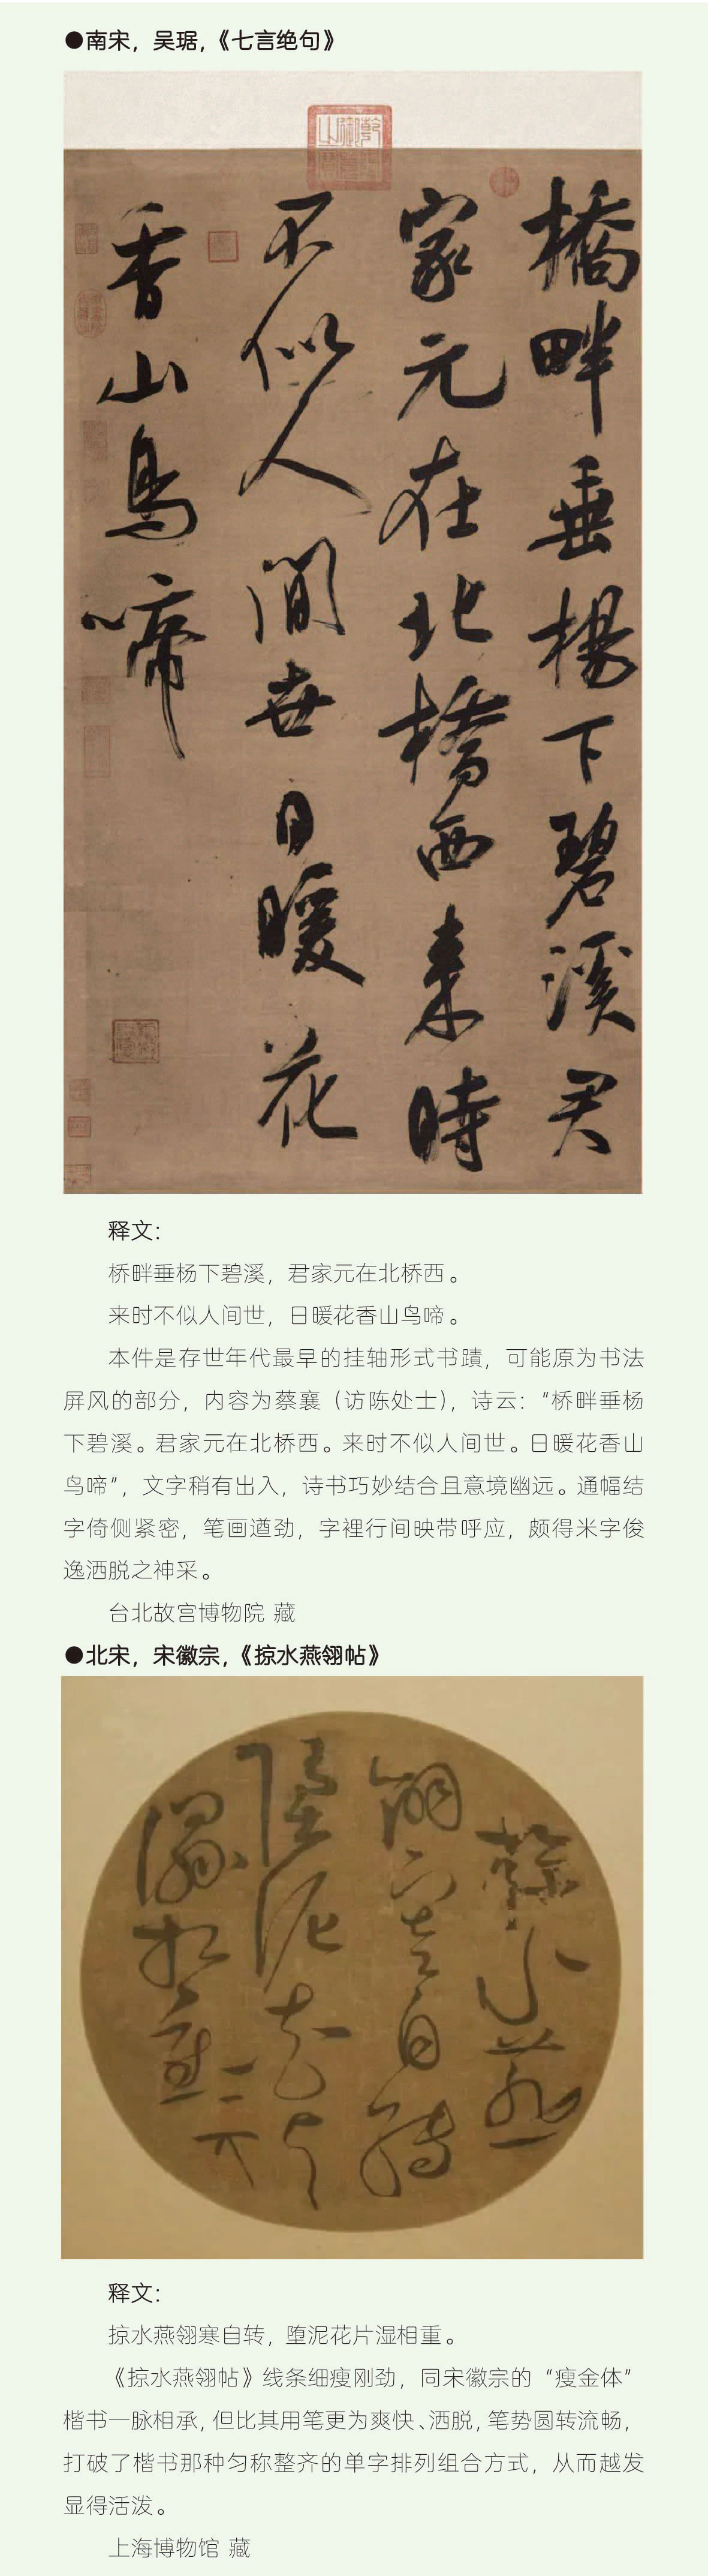 ●南宋，吴琚，《七言绝句》
橋畔垂楊下碧溪君
家元在北橋西来時
不似人間世日暖花
香山鳥啼
释文：
桥畔垂杨下碧溪，君家元在北桥西。
来时不似人间世，日暖花香山鸟啼。
本件是存世年代最早的挂轴形式书蹟，可能原为书法
屏风的部分，内容为蔡襄（访陈处士），诗云：“桥畔垂杨
下碧溪。君家元在北桥西。来时不似人间世。日暖花香山
鸟啼”，文字稍有出入，诗书巧妙结合且意境幽远。通幅结
字倚侧紧密，笔画遒劲，字裡行间映带呼应，颇得米字俊
逸洒脱之神采。
台北故宫博物院 藏
●北宋，宋徽宗，《掠水燕翎帖》
掠水燕
翎寒自轉
堕泥花片
濕相重
释文：
掠水燕翎寒自转，堕泥花片湿相重。
《掠水燕翎帖》线条细瘦刚劲，同宋徽宗的“瘦金体”
楷书一脉相承，但比其用笔更为爽快、洒脱，笔势圆转流畅，
打破了楷书那种匀称整齐的单字排列组合方式，从而越发
显得活泼。
上海博物馆 藏